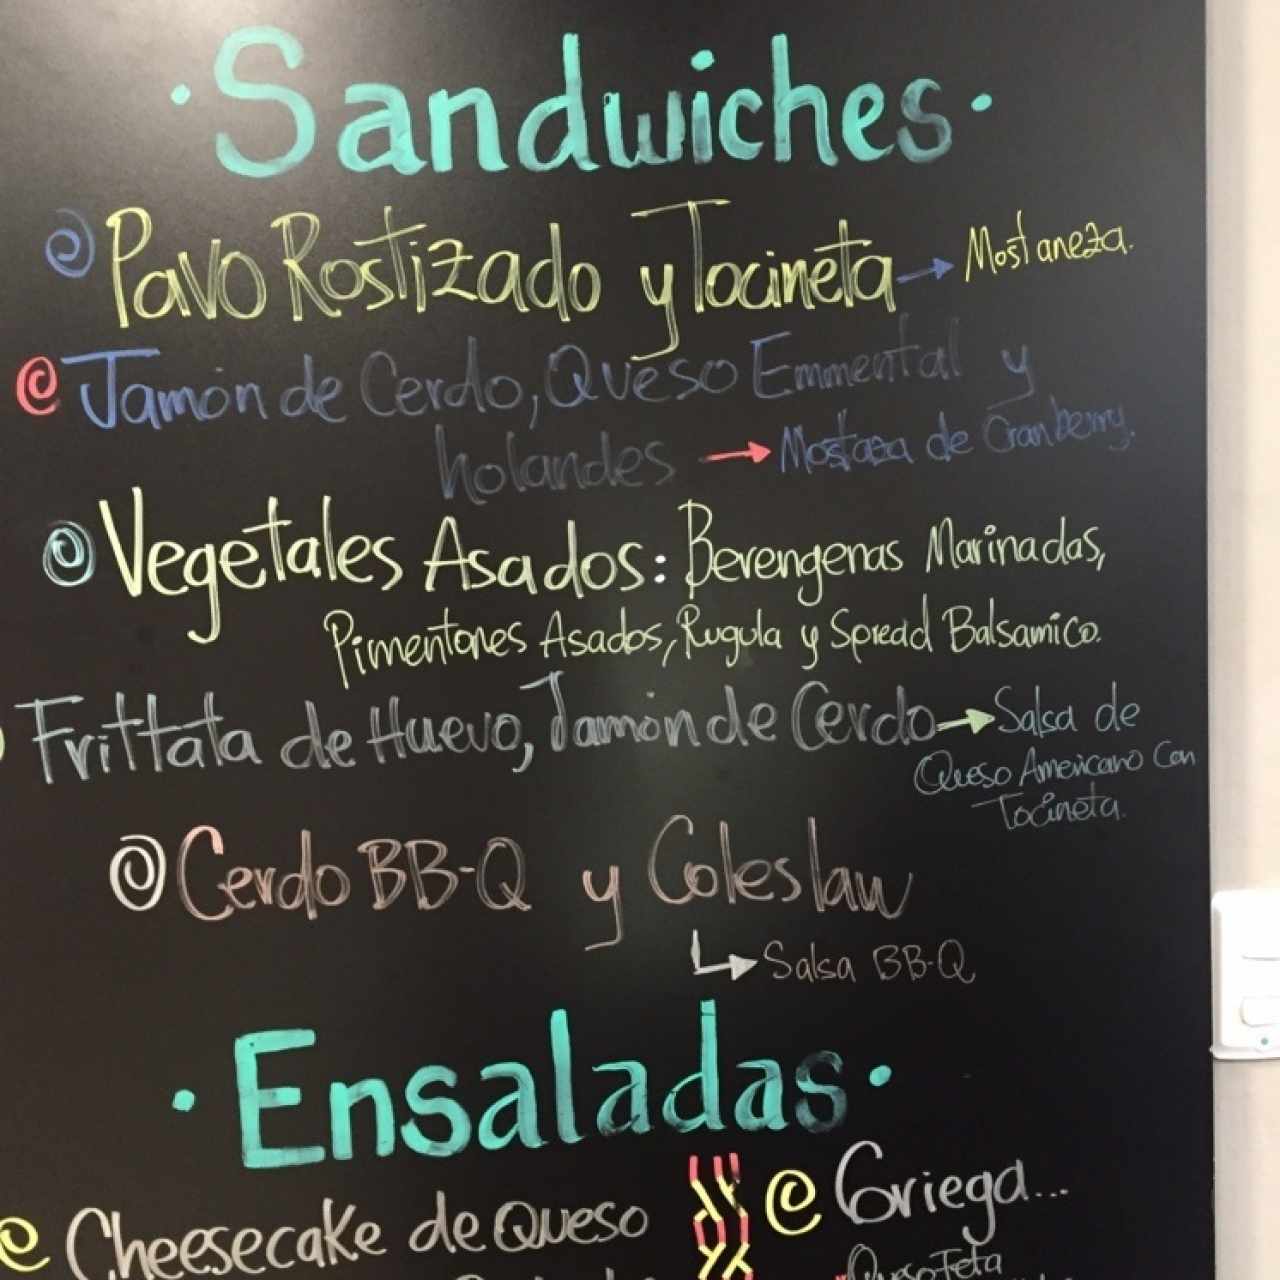 Sandwiches
Pavo Rostizado y Tocineta → Mostaneza.
Jamón de Cerdo, Queso Emmental y
holandes → Mostaza de Cranberry.
Vegetales Asados: Berengenas Marinadas,
Pimentones Asados, Rugula y Spread Balsamico.
Frittata de Huevo, Jamón de Cerdo → Salsa de
Queso Americano Con
Tocineta.
Cerdo BB-Q y Coleslaw
Salsa BB-Q
Ensaladas
Cheesecake de Queso
Griega...
Queso Feta